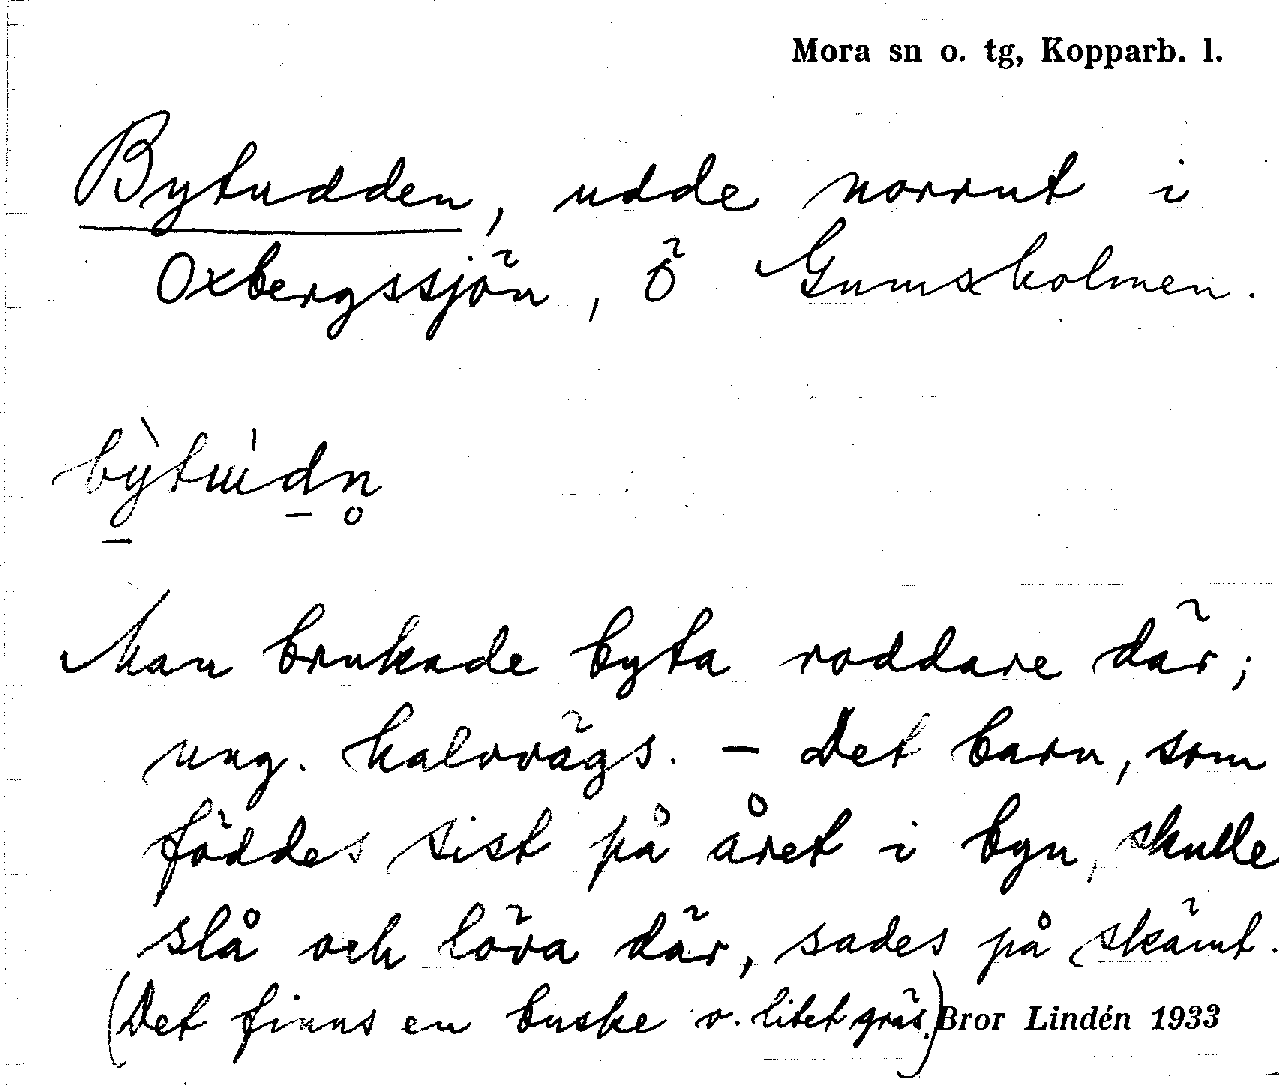 Mora sn o. tg, Kopparb. l.
Bytudden, udde norrut i
Oxbergssjön, ö Gumsholmen.
Man brukade byta roddare där;
ung. halvvägs. – Det barn, som
föddes sist på året i byn, skulle
slå och löva där, sades på skämt.
(Det finns en buske o. litet gräs.)
Bror Lindén 1933